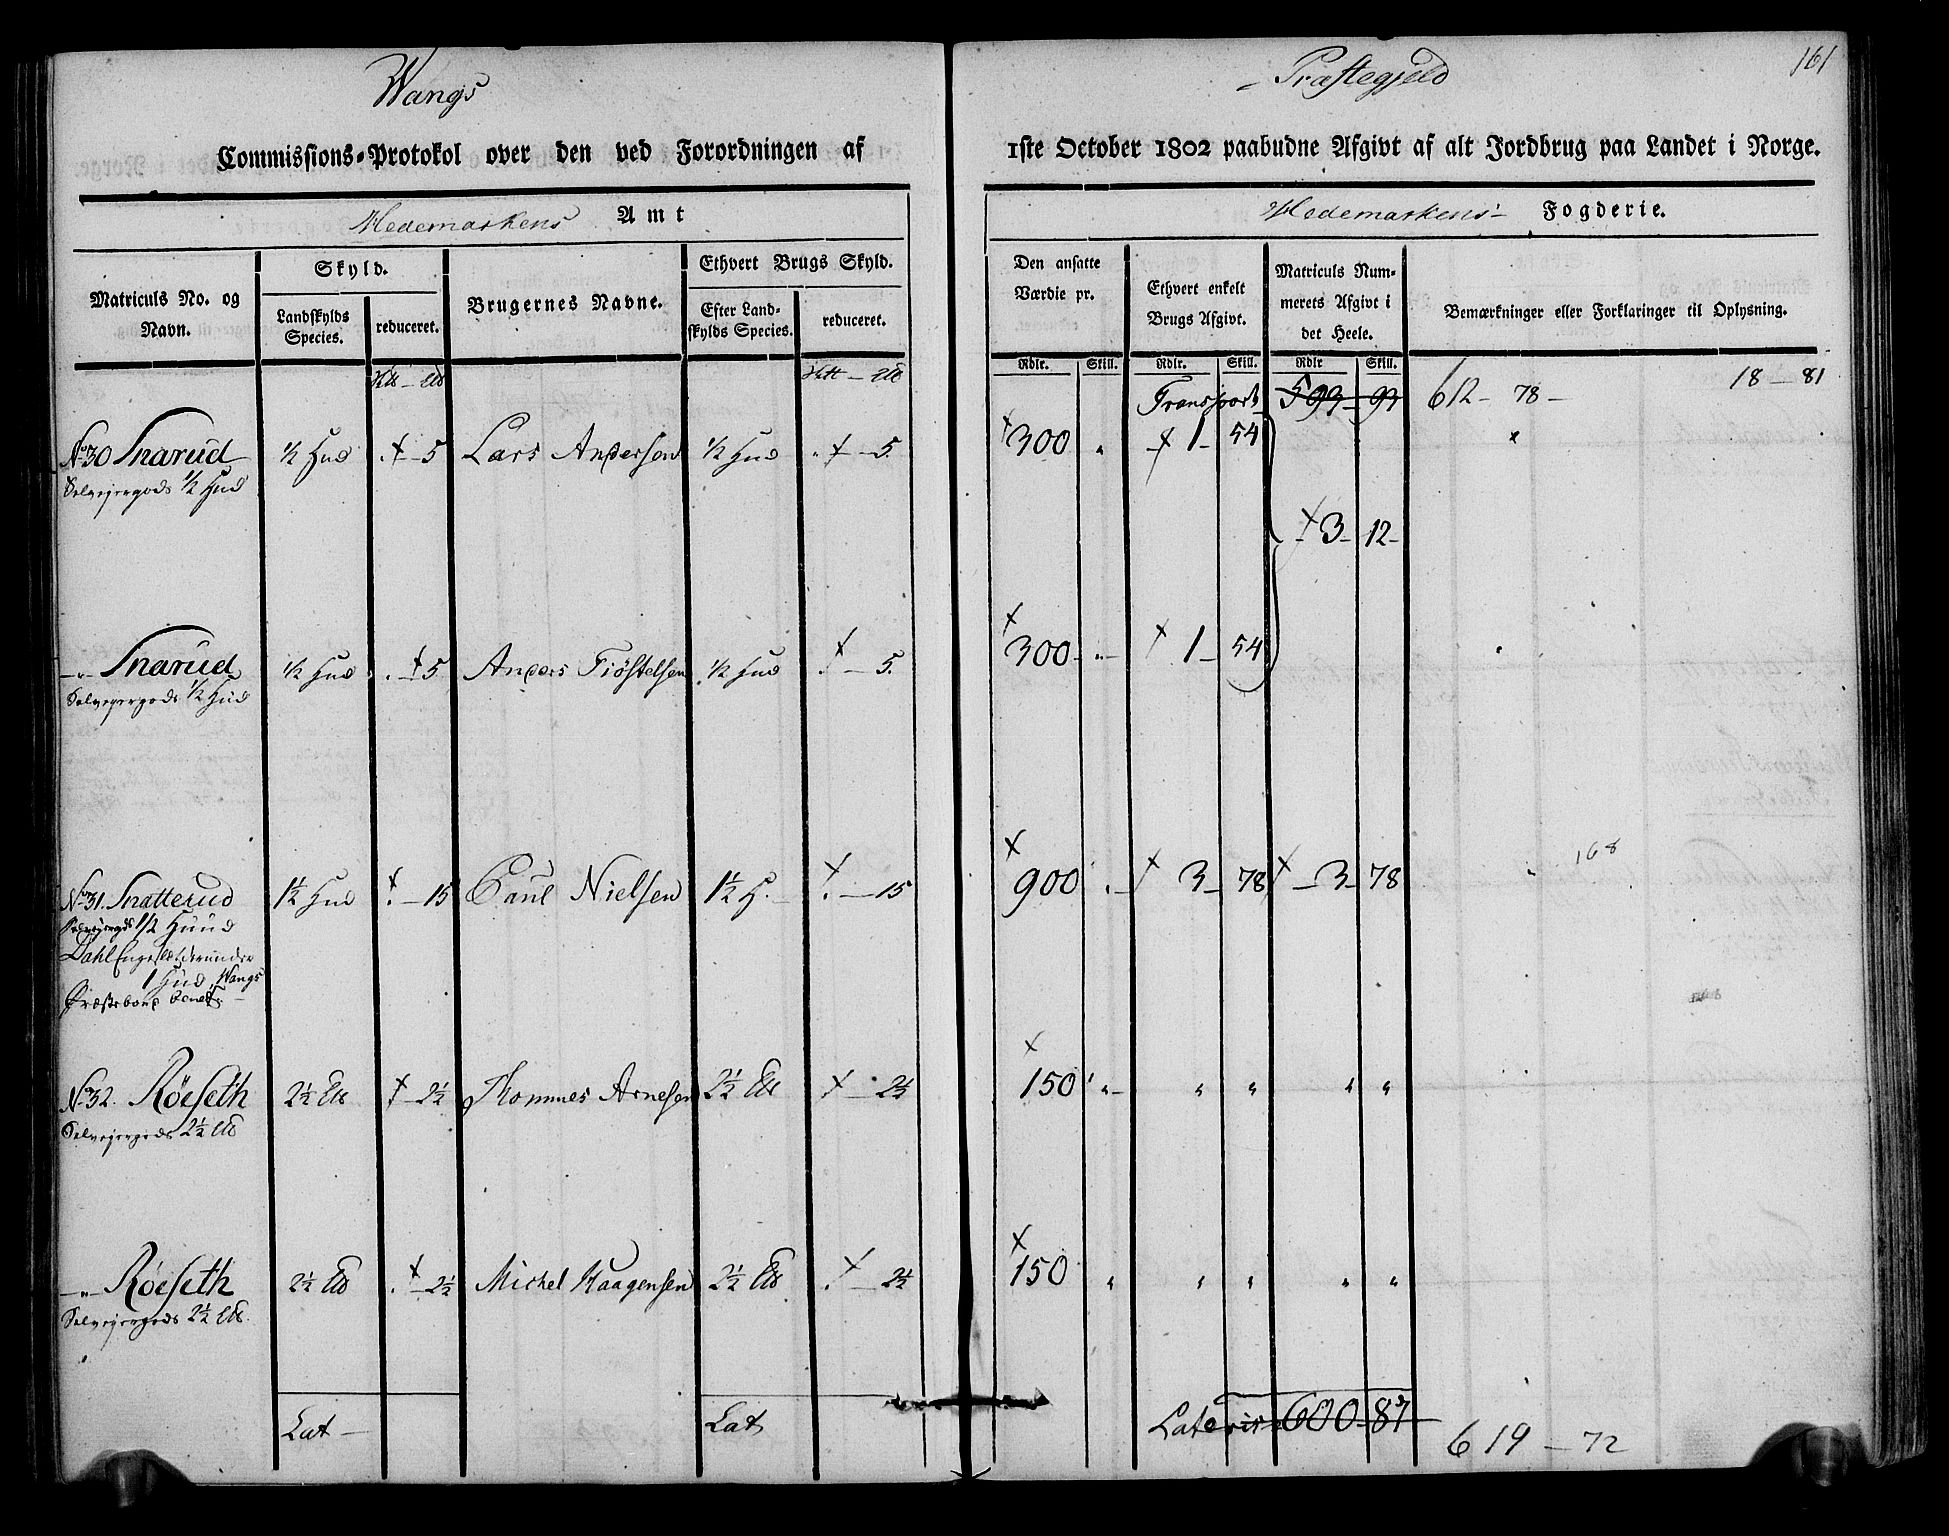 Wangs
Præstegjeld
161
Commissions-Protokol over den ved Forordningen af
1ste October 1802 paabudne Afgivt af alt Jordbrug paa Landet i Norge.
Hedemarkens Amt
Hedemarkens Fogderie.
Matriculs No. og Navn.
Skyld.
Landskylds Species.
reduceret.
Brugernes Navne.
Ethvert Brugs Skyld.
Efter Landskylds Species.
reduceret.
Den ansatte Værdie pr.
Ethvert enkelt Brugs Afgivt.
Matriculs Nummerets Afgivt i det Heele.
Bemærkninger eller Forklaringer til Oplysning.
Rdlr. Skill. Rdlr. Skill. Rdlr Skill.
Transport 593 - 93 612 - 78 - 18 - 81
No 30 Snarud ½ Hud 5 Lars Andersen ½ Hud 5. 300 " 1 - 54
Selvejergods ½ Hud
3 - 12 -
- " - Snarud ½ Hud 5 Anders Tiøstelsen ½ Hud 5. 300 - " - 1 - 54
Selvejergods ½ Hud
168
No 31. Snatterud 1½ Hud - 15 Paul Nielsen 1½ H. - 15 900 3 - 78 - 3 - 78
Selvejergods 1/2 Huud
Dahl Engeslæt derunder
1 Hud, Wangs
Præstebord
No 32. Röeseth 2½ - 2½ Thommes Arnesen 2½ - 2½ 150 " - " " " "
Selvejergods 2½
- " - Röeseth 2½ - 2½ Michel Haagensen 2½ - 2½ 150 " " " " "
Selvejergods 2½
Lat - Lat Lateris 600 - 87
619 - 72